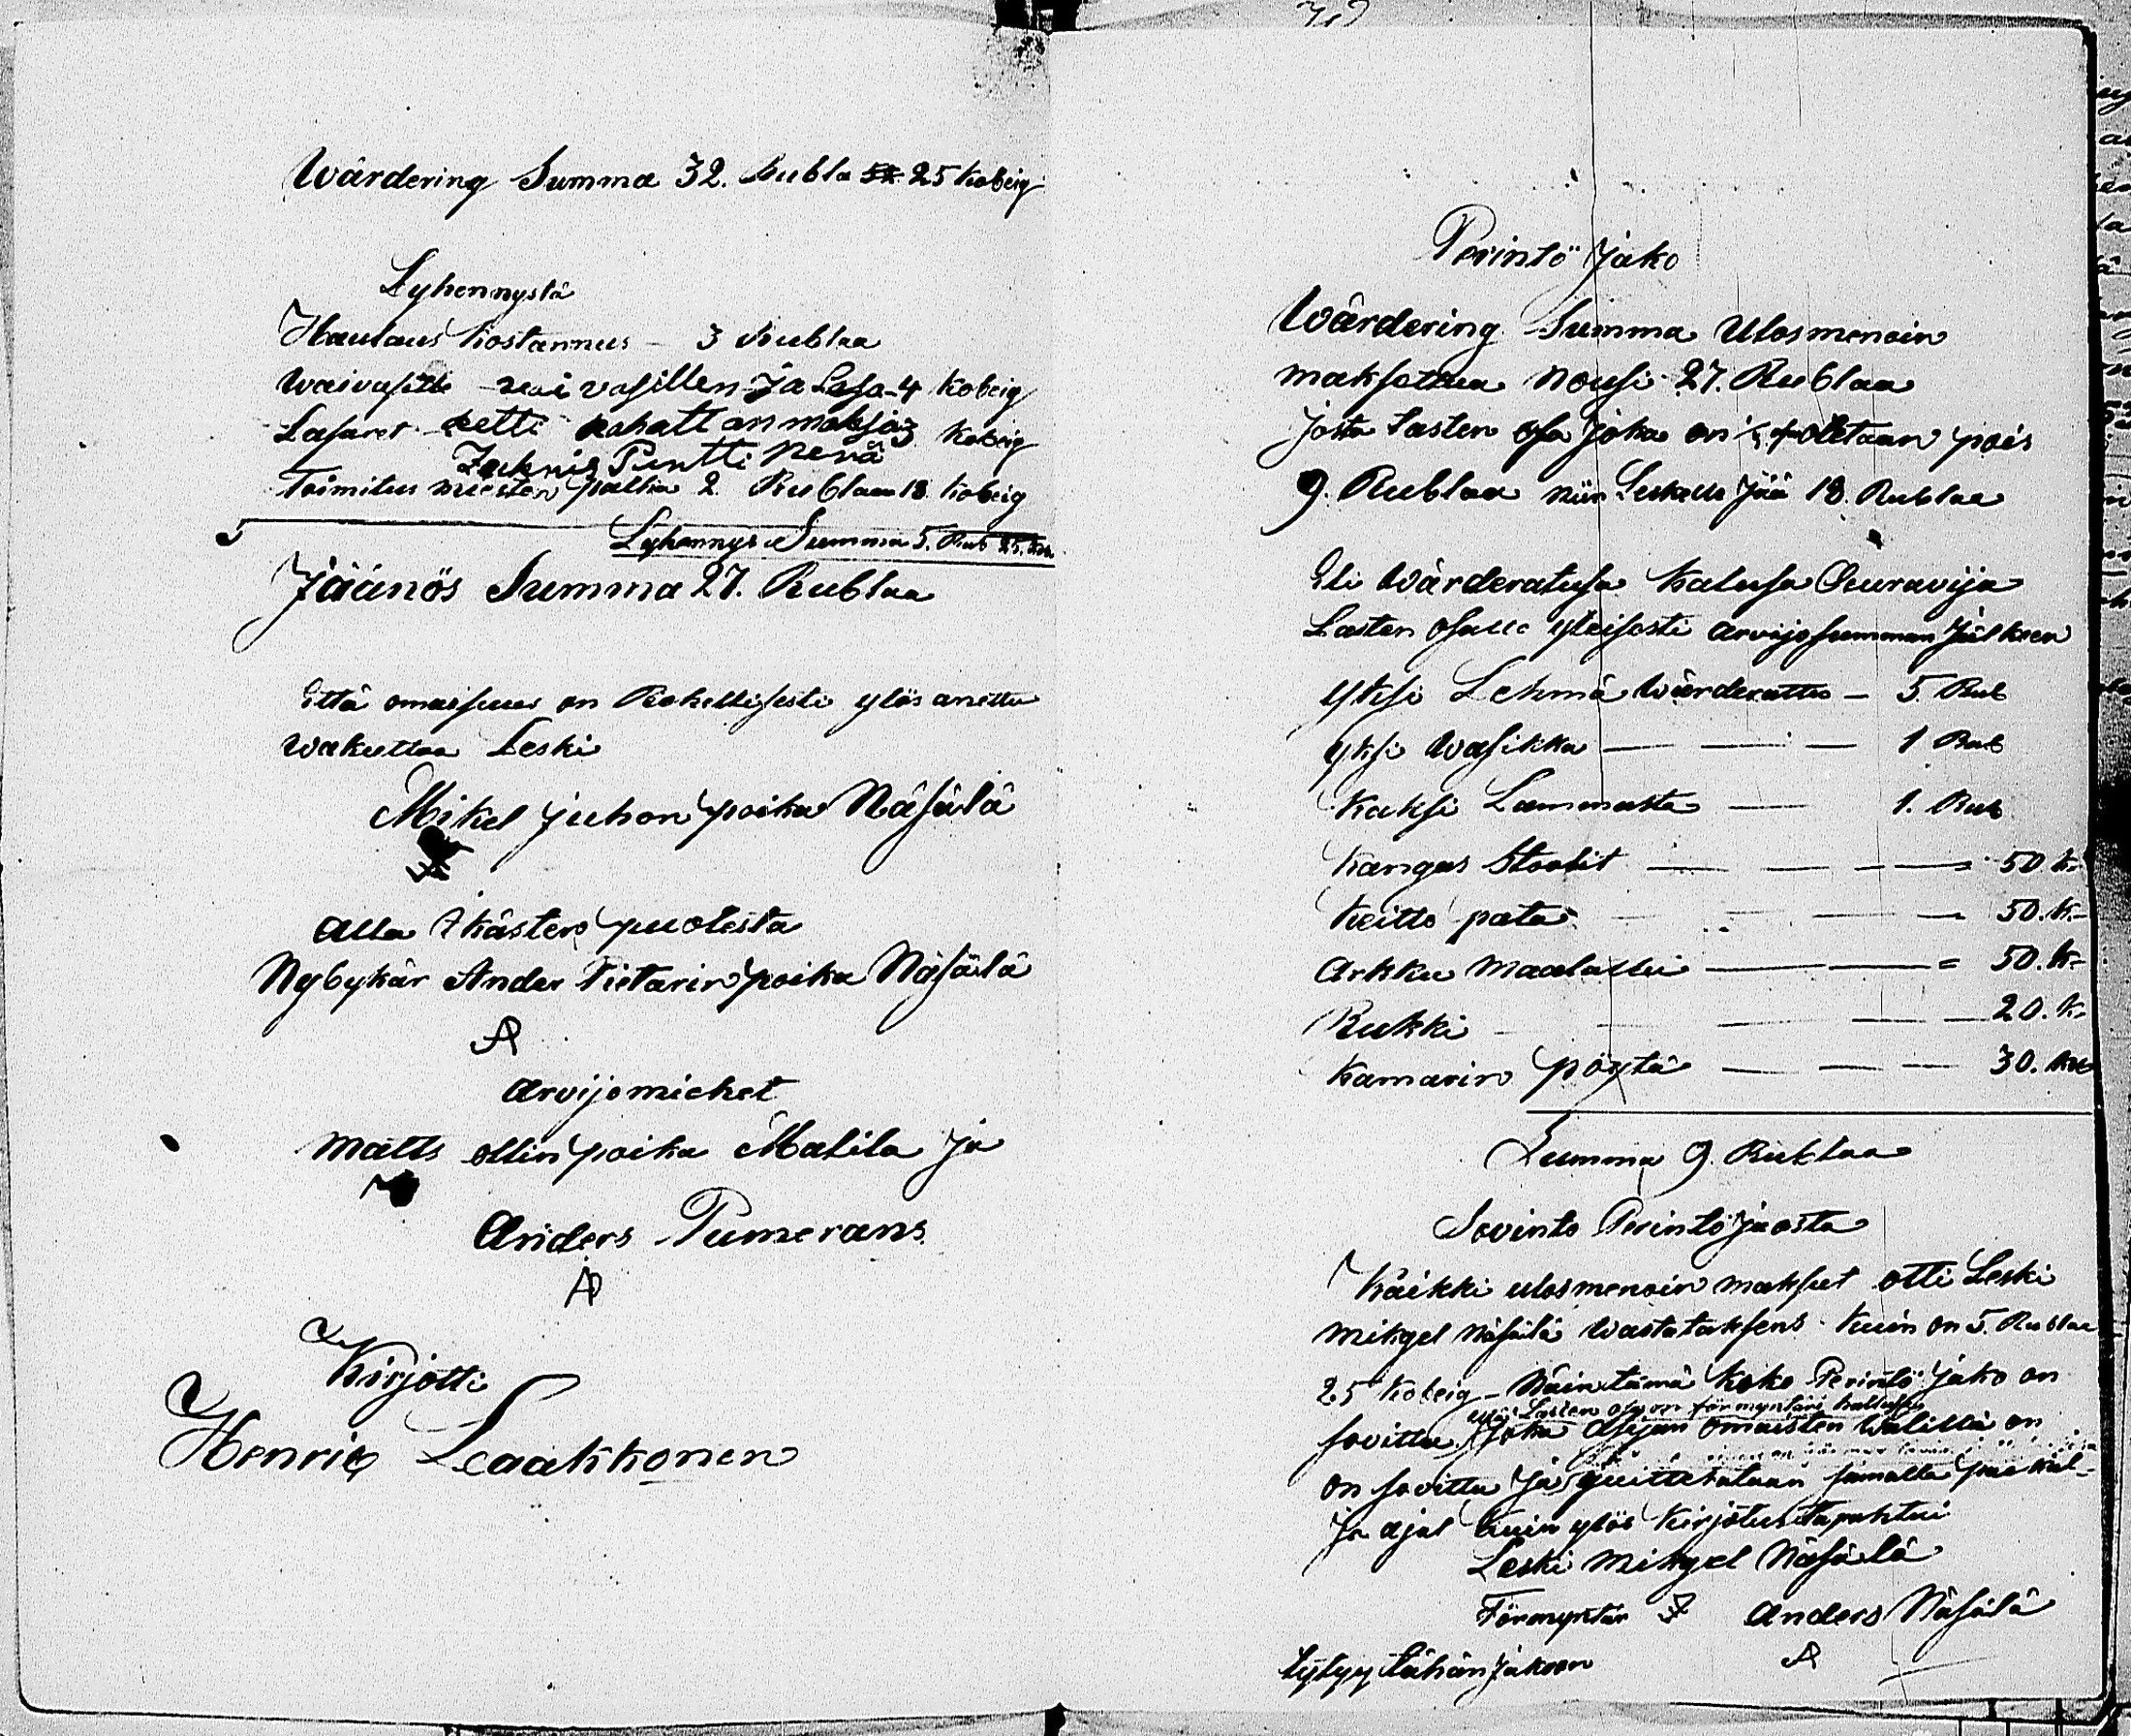 Wärdering Summa 32. Rubla 25 kobeig
Lyhennystä
Hautaus kostannus - 3 Rublaa
Waivasille vaivasillen ja Lasa - 4 kobeig
Lasaret setti rahatt on maksja 3 kobeig
Pentti Nenä
Toimitus miesten palka 2. Rublaa 18 kobeig
Lyhennys Summa 5. Rub 25. Kob
Jäänös Summa 27. Rublaa
Että omaisuus on Rehellisesti ylös anettu
wakuttaa Leski
Mikel Juhon poika Näsälä
Alla Ikästen puolesta
Nybykär Ander Pietarin poika Näsälä
AP
Arvijomiehet
Matts ollin poika Matila ja
Anders Pumerans
AP
Kirjotti
Henric Laakkonen
Perintö Jako
Wärdering Summa Ulosmenoin
maksettua Nousi 27. Rublaa
josta Lasten osa joka on ⅓ otetaan pois
9. Rublaa niin Leskelle Jää 18. Rublaa
Eli Wärderatusa Kalusa Seuravija
Lasten osalle yleisesti arvijo summan Jälkeen
yksi Lehmä Wärderattu - 5 Rub
yksi Wasikka — — — 1 Rub
Kaksi Lammasta — 1. Rub
Kangas Stoolit — — — 50 K.
Keitto pata — — — 50. K.
Arkku Maalattu — — 50. K.
Rukki — — — 20. K.
Kamarin pöytä — — — 30. Kob
Summa 9. Rublaa
Sovinto Perintö Jaosta
Kaikki ulosmenoin maksut otti Leski
Mikgel Näsälä Wastataksens kuin on 5. Rublaa
25 Kobeig - Näin tämä koko Perintö Jako on
että Lasten osa on förmyntäri hallussa
sovittu, Joka Asijan omaisten Wälillä on
on sovittu Ja quittetataan samalla paikal-
Ja ajal kuin ylös kirjotus tapahtui
Leski Mikgel Näsälä
Förmyntär Anders Näsälä
AP
tytyy tähän Jakoon